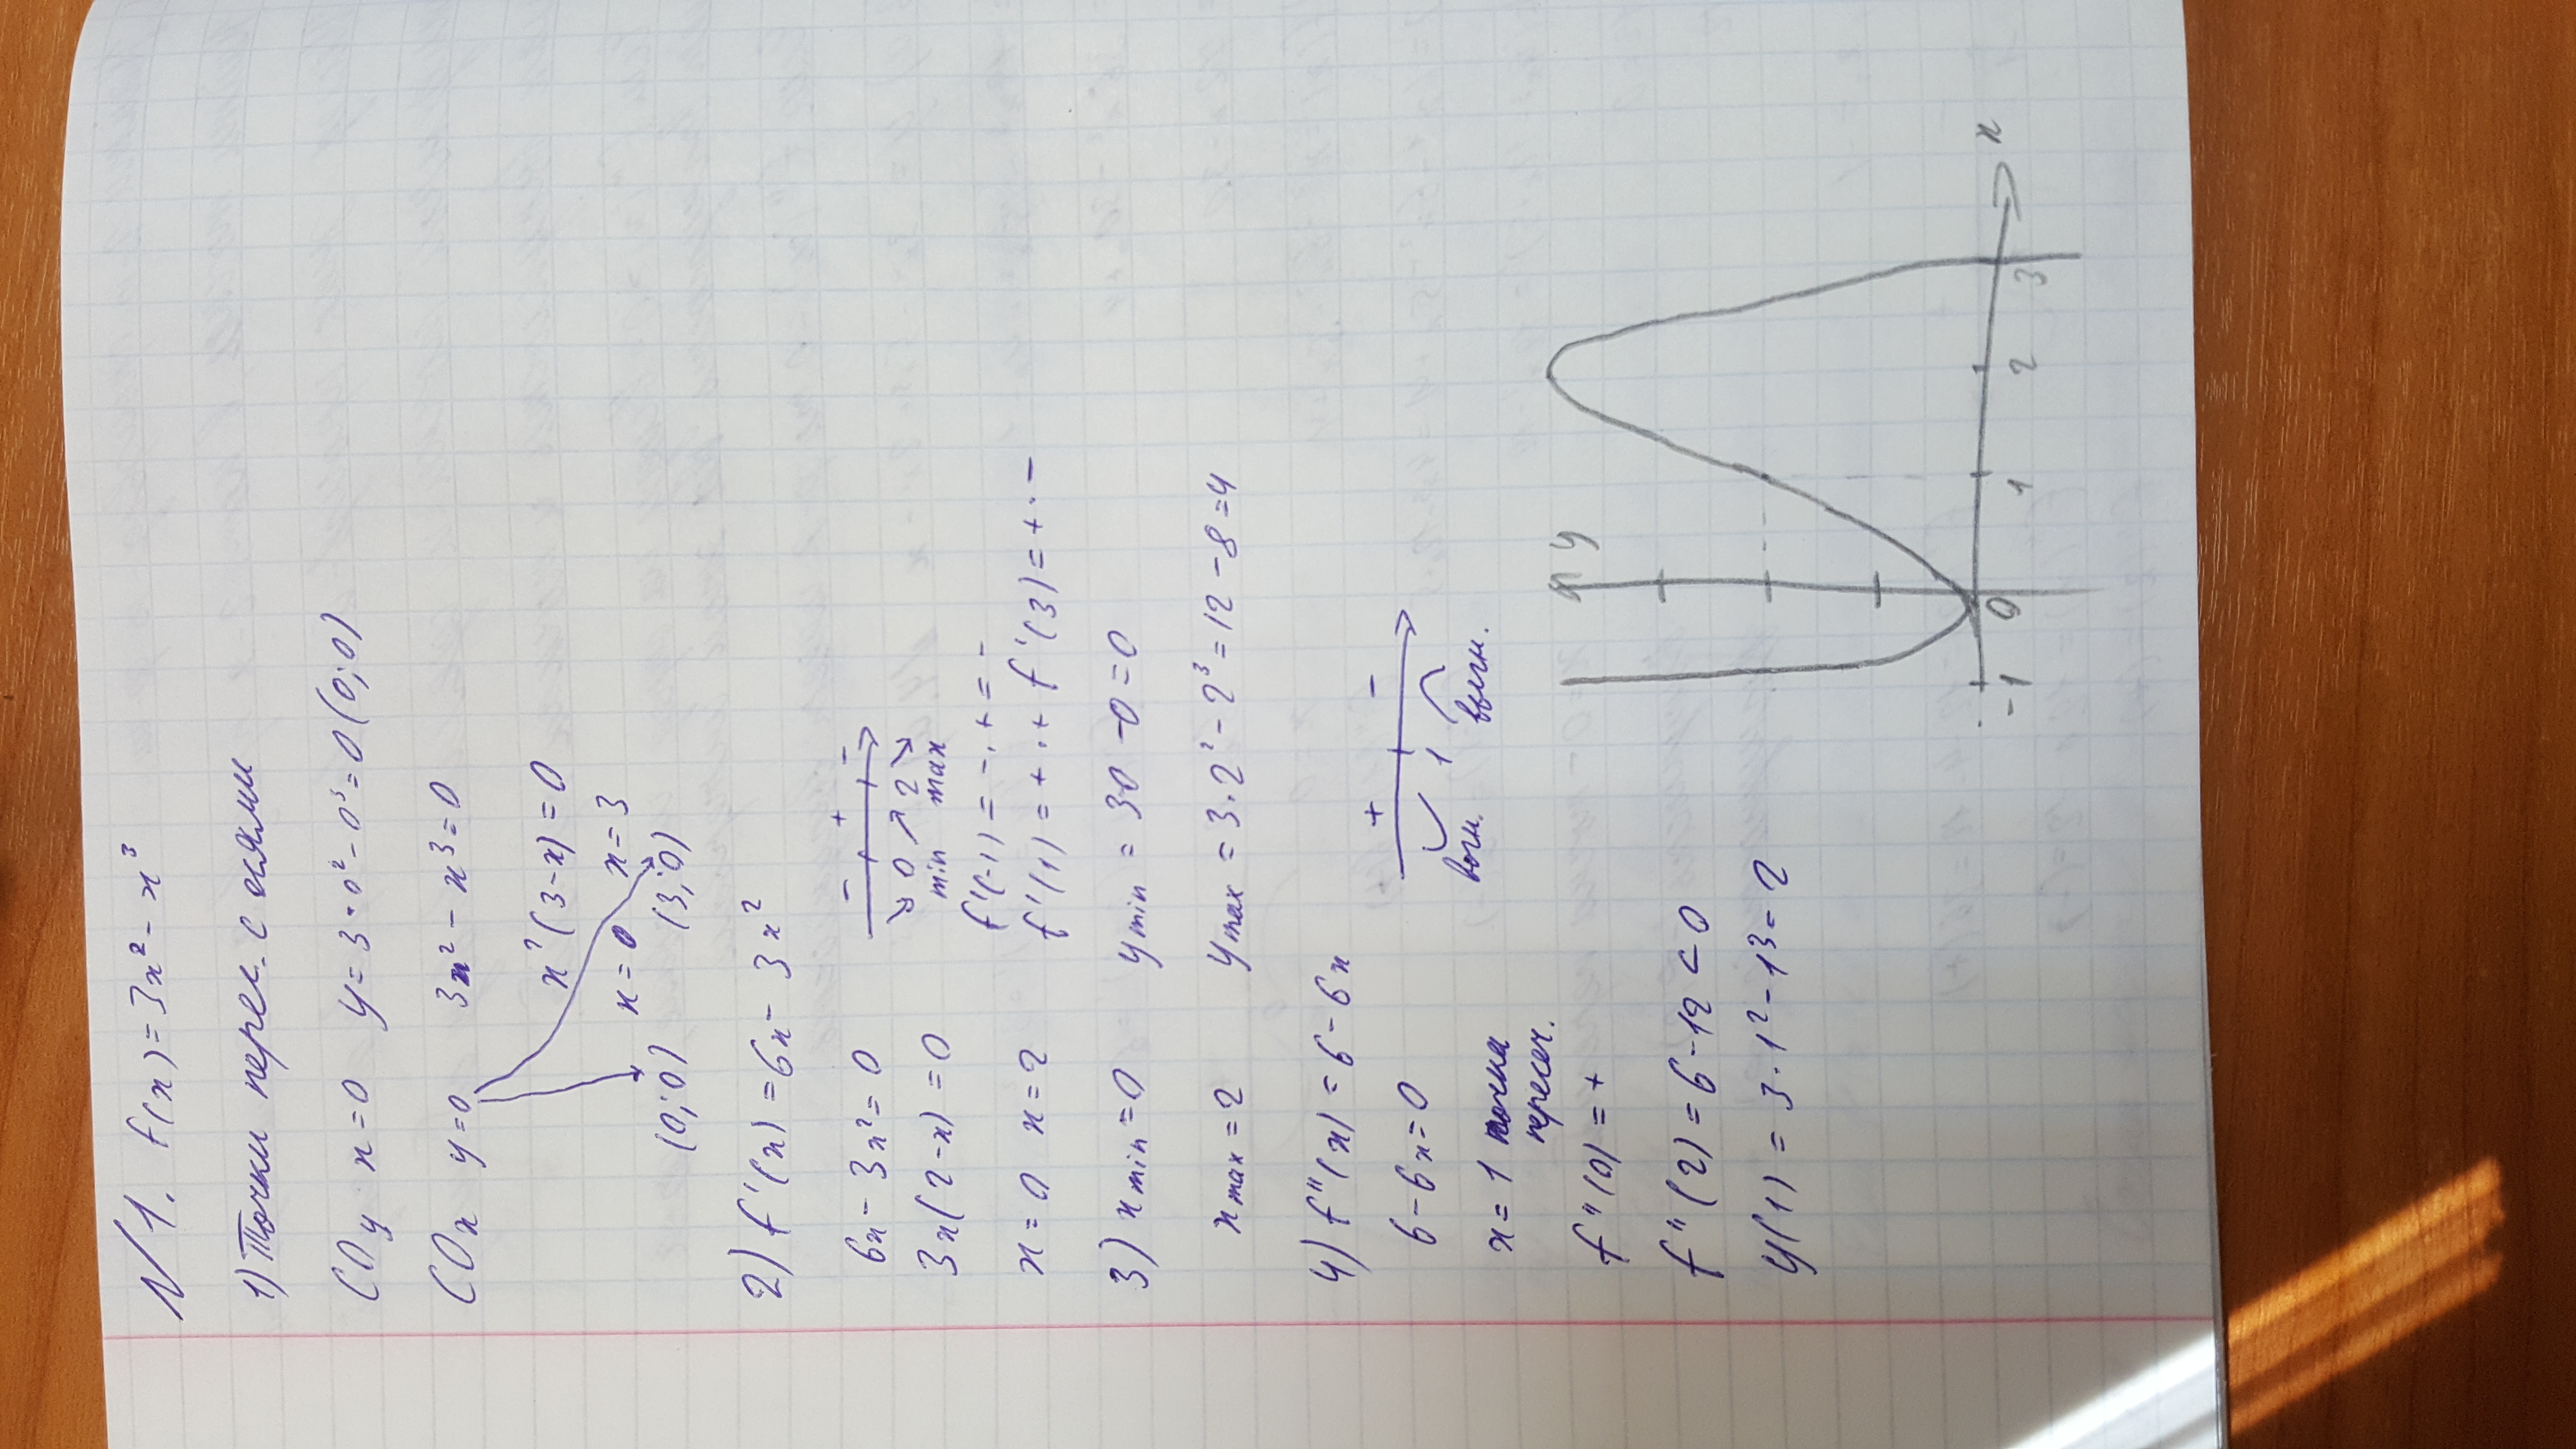 N1. f(x) = 3x² - x³
1) Точки перес. с осями
СОу x=0 y = 3·0² - 0³ = 0 (0;0)
СОх y=0 3x² - x³ = 0
x²(3-x) = 0
x=0 x=3
(0;0) (3;0)
2) f'(x) = 6x - 3x²
6x - 3x² = 0 - + -
3x(2-x) = 0 0 2
min max
x=0 x=2 f'(-1) = -·+ = -
f'(1) = +·+ f'(3) = +·-
3) xmin = 0 ymin = 30 - 0 = 0
xmax = 2 ymax = 3·2² - 2³ = 12 - 8 = 4
4) f''(x) = 6 - 6x
6 - 6x = 0 + -
1
x = 1 точка вогн. выгн.
пересеч.
f''(0) = +
f''(2) = 6 - 12 < 0
y(1) = 3·1² - 13 = 2
y
-1 0 1 2 3 x